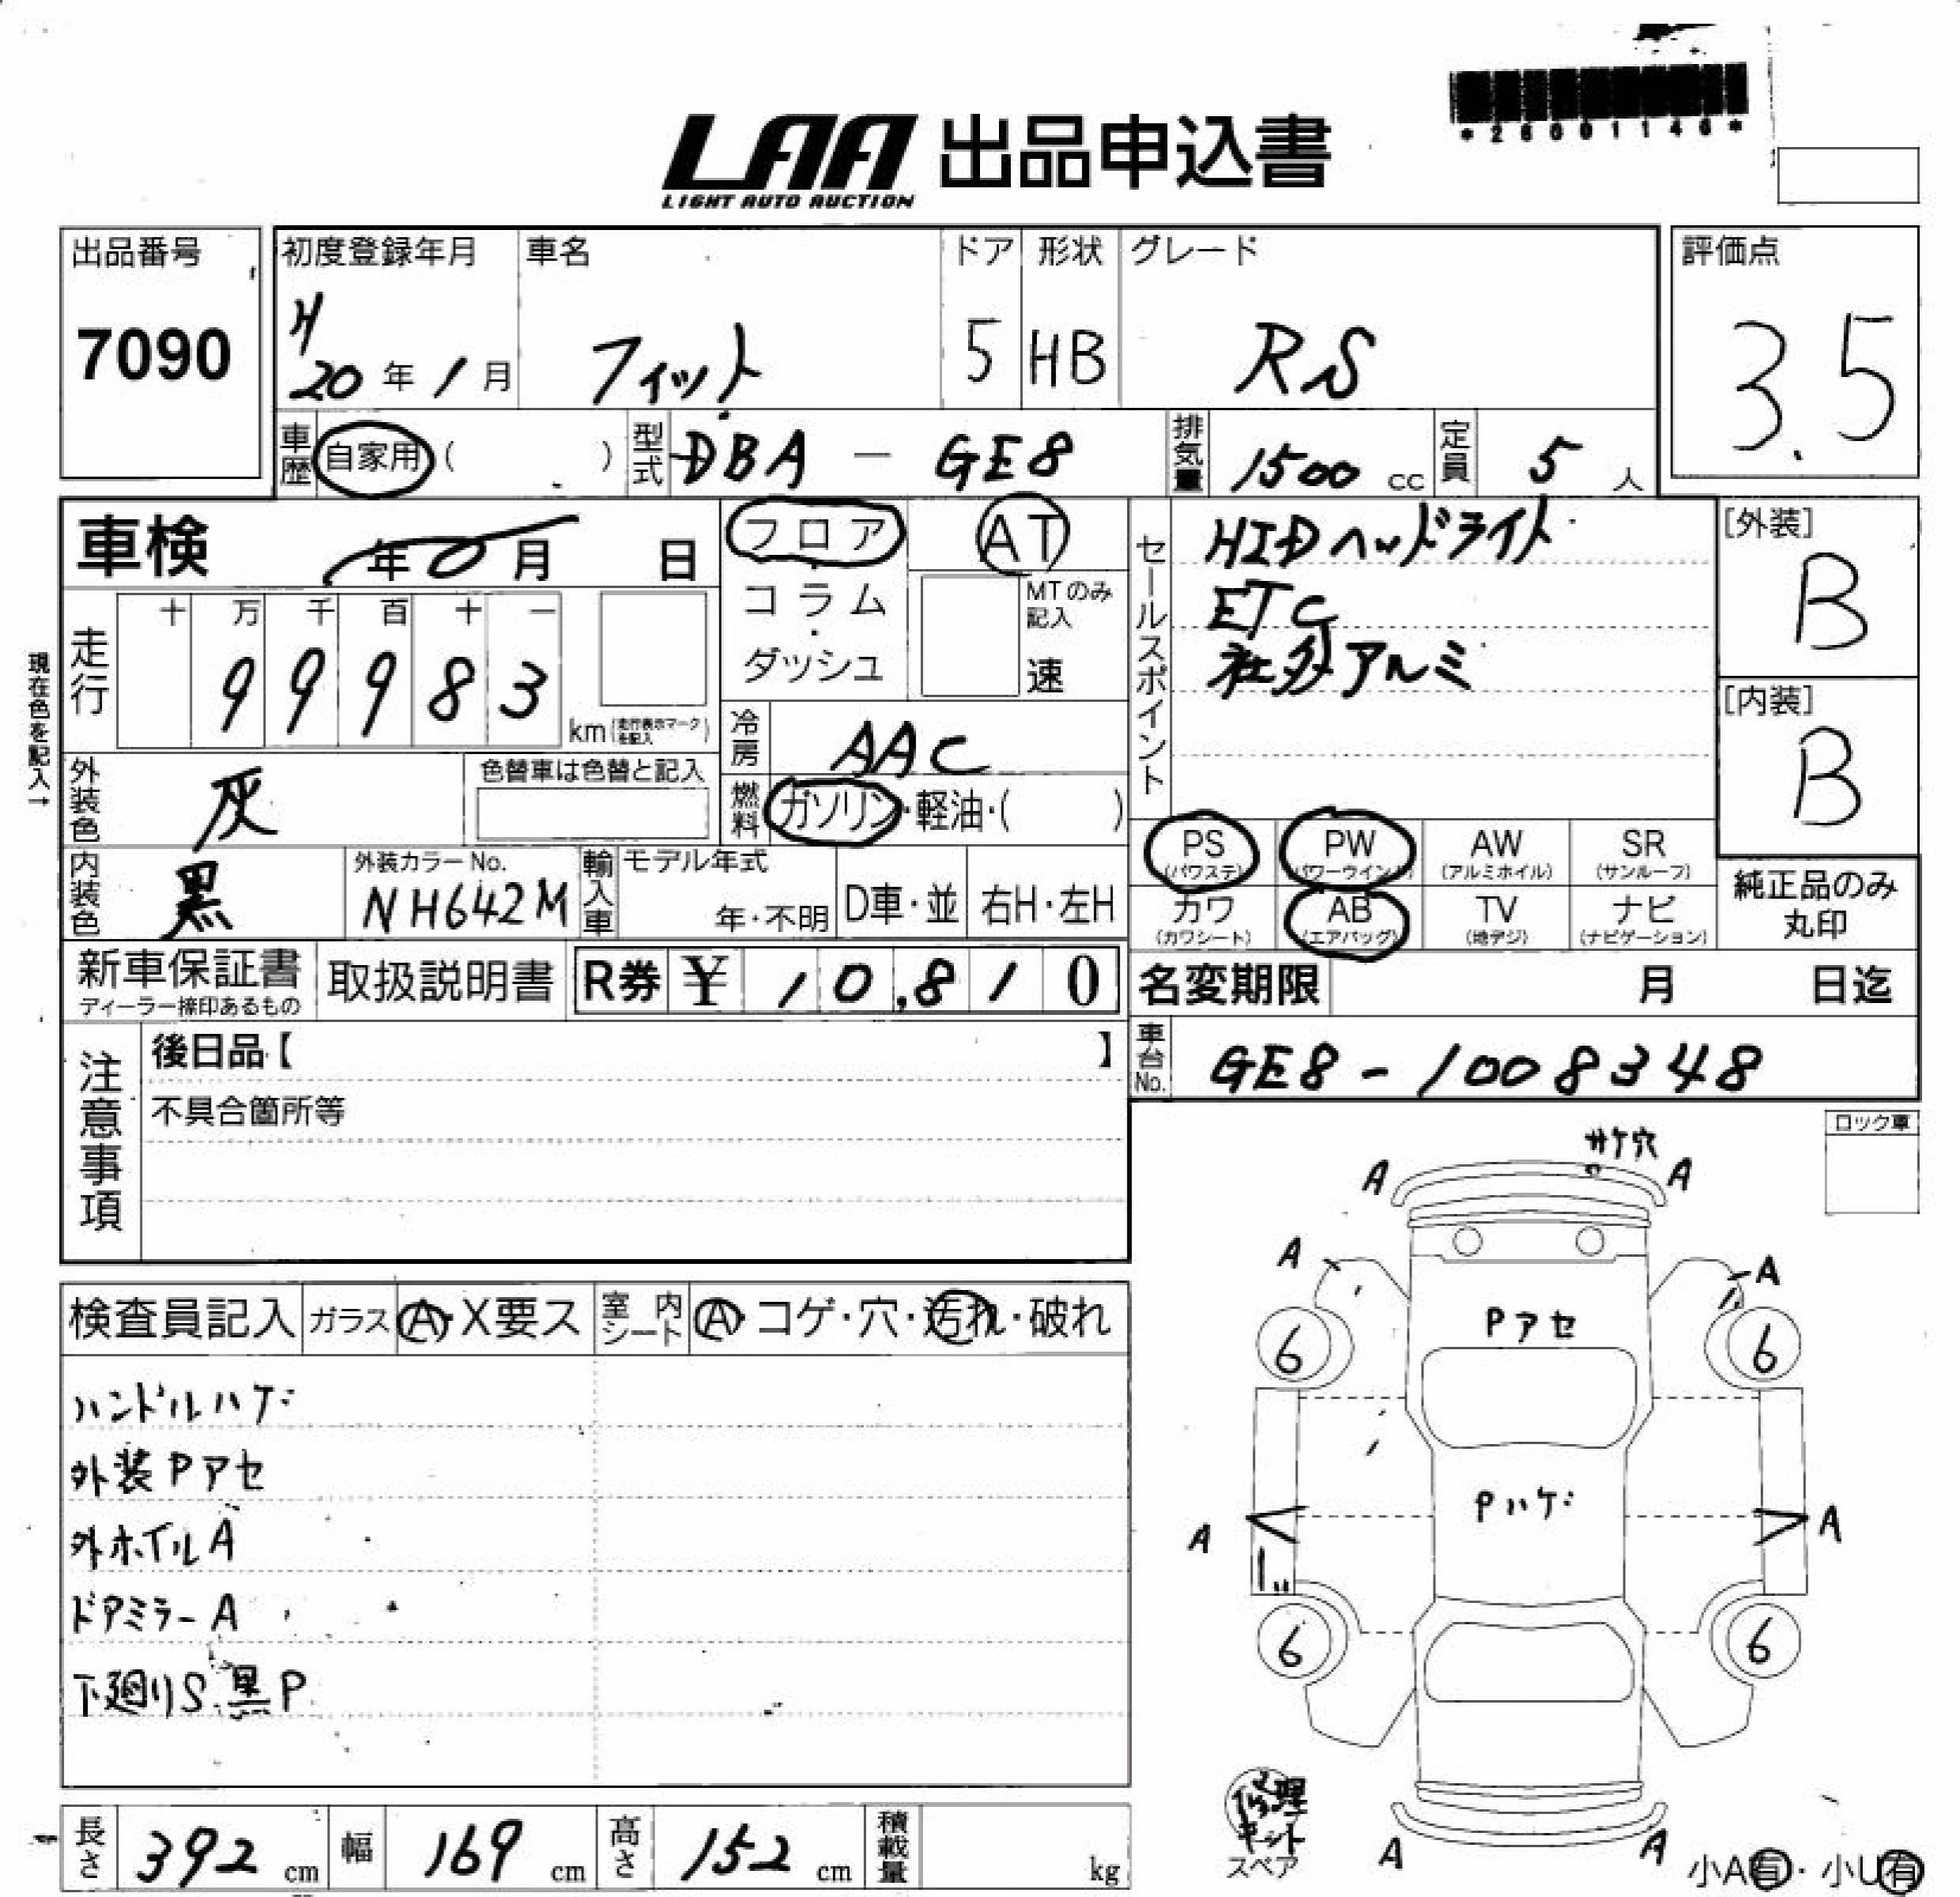 *26001146*
LAA 出品申込書
LIGHT AUTO AUCTION
出品番号
7090
初度登録年月
H20年1月
車名
フィット
ドア
5
形状
HB
グレード
RS
評価点
3.5
車歴 自家用 ( )
型式 DBA - GE8
排気量 1500 cc
定員 5 人
車検 年 月 日
フロア
コラム・
ダッシュ
AT
MTのみ
記入
速
セールスポイント
HIDヘッドライト
ETC
社外アルミ
[外装]
B
[内装]
B
現在色を記入→
走行
十 万 千 百 十 一
9 9 9 8 3
km(走行表示マークを記入)
冷房 AAC
燃料 ガソリン・軽油・( )
外装色 灰
色替車は色替と記入
内装色 黒
外装カラーNo.
NH642M
輸入車
モデル年式
年・不明
D車・並
右H・左H
PS
(パワステ)
PW
(パワーウインド)
AW
(アルミホイル)
SR
(サンルーフ)
カワ
(カワシート)
AB
(エアバッグ)
TV
(地デジ)
ナビ
(ナビゲーション)
純正品のみ
丸印
新車保証書
ディーラー捺印あるもの
取扱説明書
R券 ¥ 10,810
名変期限 月 日迄
車台No. GE8-1008348
注意事項
後日品【 】
不具合箇所等
ロック車
検査員記入
ガラス A・X要ス
室内シート A・コゲ・穴・汚れ・破れ
ハンドルハゲ
外装Pアセ
外ホイルA
ドアミラーA
下廻りS.黒P
サケ穴
A
A
A
A
Pアセ
6
6
Pハゲ
A
A
6
6
修理
キット
スペア
A
A
小A有・小U有
長さ 392 cm
幅 169 cm
高さ 152 cm
積載量 kg